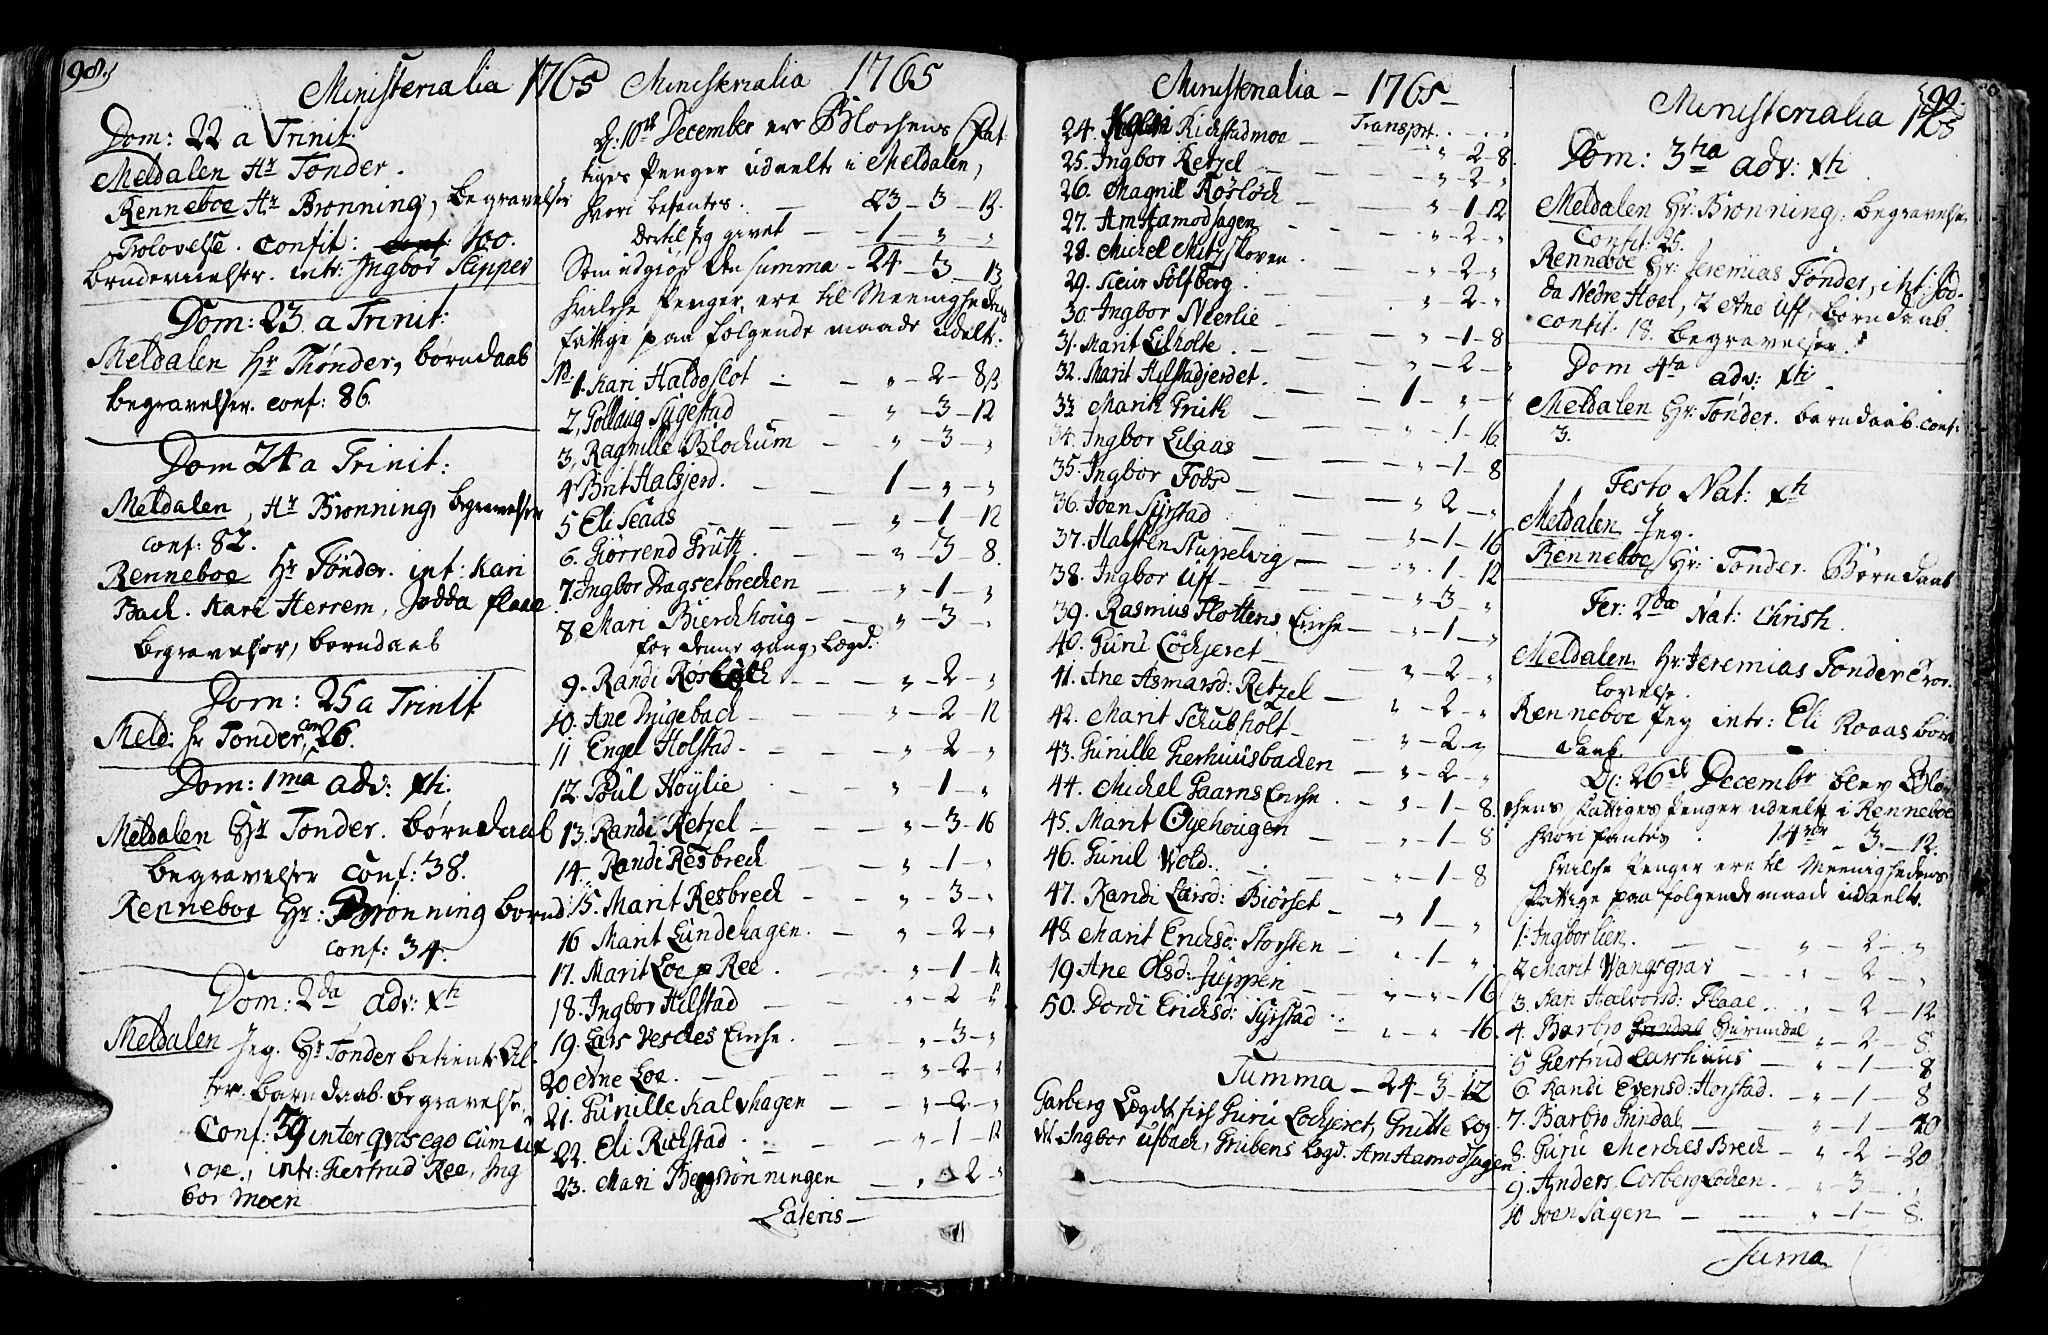 98.
Ministerialia 1765
Dom: 22 a Trinit.
Meldalen Hr Tonder.
Renneboe Hr Brønning, begravelser
Trolovelse. confit: 100.
barnedaab, intr: Ingbor Skipper
Dom: 23 a Trinit:
Meldalen Hr Thønder, børndaab
begravelser. conf: 86.
Dom 24 a Trinit:
Meldalen, Hr Brønning, begravelser
conf: 82.
Renneboe Hr Tønder. int: Kari
Bach. Kari Herrem, Jodda flaae
begravelser, børndaab
Dom: 25 a Trinit
Meld: hr Tonder, con 26.
Dom: 1ma adv: xti.
Meldalen Hr Tonder. børndaab
begravelser conf: 38.
Renneboe Hr: Brønning børnd:
conf: 34.
Dom: 2da adv: Xti
Meldalen Jeg. Hr Tønder betient
barndaab. begravelse,
Conf: 39 inter qvos ego cum ux
ore, intr: Giertrud Ree, Ing
bor Moen
Ministerialia 1765
D. 10de December ere Blochens Fat:
tiges Penger uddeelt i Meldalen,
hvori befantes. 23 - 3 - 13.
Dertil jeg givet 1 - " - "
Som udgiør en Summa - 24 - 3 - 13
hvilche Penger ere til Meenighedens
fattige paa følgende maade udelt:
No. 1. Kari Haldoslot - " - 2 - 8 ß
2, Gollaug Sygestad " - 3 - 12
3, Ragnille Blochum - " - 3 - "
4 Brit Halsjerd. - 1 - " - "
5 Eli Seaas - " - 1 - 12
6. Giørrend Gruth. - " - 3 - 8.
7. Ingbor Dragsetbrechen - " - 1 - "
8 Mari Bierchhoug - " - 3 - "
for denne gang, Lægd.
9. Randi Røsløch - " - 2 - "
10. Ane Brigebach - " - 2 - 12
11 Engel Holstad - " - 2 - "
12. Poul Høylie " - 1 - "
13. Randi Retzel - " - 3 - 16
14. Randi Resbrech - " - 1 - "
15. Marit Resbrech - " - 3 - "
16 Marit Lundehagen. - " - 2 - "
17. Marit Loe p Ree. - " - 1 - 12
18. Ingbor Hilstad - " - 2 "
19. Lars Vesches Enche. - " - 3 - "
20 Ane Loe. - " - 2 - "
21. Gunille Kalvhagen - " - 2 - "
22. Eli Richstad. - " - 1 - 12
23. Mari Bergsrønningen - " - 2 - "
Lateris -
Ministerialia - 1765 -
Transpt.
24. Richstadmoe - " - 2 - 8.
25. Ingbor Retzel - " - 2 - "
26. Magnil Røsløch " - 1 - 12
27. Am Aamodhagen - " - 2 - "
28. Michel Mitzskoven. - " - 2 - "
29. Sieur Solfberg. - " - 2 - "
30. Ingbor Neerlie - " - 1 - 8
31. Marit Lilholte. - " - 2 - "
32. Marit Hilstadjerdet. - 1 - " - "
33. Marith Gruth - " - 1 - 16
34. Ingbor Liaas - " - 1 - 8
35. Ingbor Fods - " 2 - "
36. Joen Syrstad - " - 1 - 16
37. Halsten Stupelvig - " - 1 - 12
38. Ingbor Uff - " - 3 - "
39. Rasmus Flottens Enche - " - 1 - "
40. Guru Lochjeret - " - 2 - "
41. Ane Asmarsd: Retzel - " - 2 - "
42. Marit Schubholt - " - 2 - "
43. Gunille Gierhuusbachen - " - 2 - "
44. Michel Gaarns Enche. - " - 1 - 8.
45. Marit Øyehougen - " - 1 - 8
46. Gunil Wold. - " - 1 - 8
47. Randi Larsd: Biørset - " - 1 - "
48 Marit Erichsd: Storsten - " - 1 - "
49 Ane Olsd: Juppen - " - " - 16
50. Dordi Erichsd: Syrstad - " - " - 16.
Summa - 24 - 3 - 12
Garberg Lægdet fich Guru Lochjeret, Grutte Læg-
det Ingbor Ufbach, Grubens Lægd. Am Aamodhagen
99.
Ministerialia 1765
Dom: 3tia adv: xti
Meldalen Hr: Brønning, begravelse
Confit: 25.
Renneboe Hr: Jeremias Tønder, int: Jod-
da Nedre Hoel, 2 Ane Uff, børndaab.
confit. 18. begravelser.
Dom 4ta adv: xti
Meldalen Hr: Tønder. barndaab. conf:
3.
Festo Nat: xti
Meldalen Jeg.
Renneboe, Hr: Tonder. Børndaab
Fer: 2da Nat: Christi.
Meldalen Hr: Jeremias Tonder Tro:
lovelse.
Renneboe Jeg intr: Eli Roaas børn
daab.
D: 26de Decembr blev Blo-
chens Fattiges Penger udeelt i Renneboe
hvori fantes. 14 rdr - 3 - 12.
hvilche Penger ere til Meenighedens
fattige paa følgende maade udeelt.
1. Ingbor lien. - " - 2 - "
2 Marit Wangsgrav - " - 2 - "
3. Kari Halvorsd: Flaae. " - 2 - 12
4. Barbro Gurindal " - 2 - 8
5 Giertrud Larshuus - " - 1 - 8
6. Randi Evensd: Horstad. - " - 1 - 8
7. Barbro Grindal - " - 1 - 40
8. Guru Merches Brech - " - 2 - 20
9. Anders Corberg Lochen. - " - 3 - "
10 Joen Hagen - " - 1 - 8.
Suma